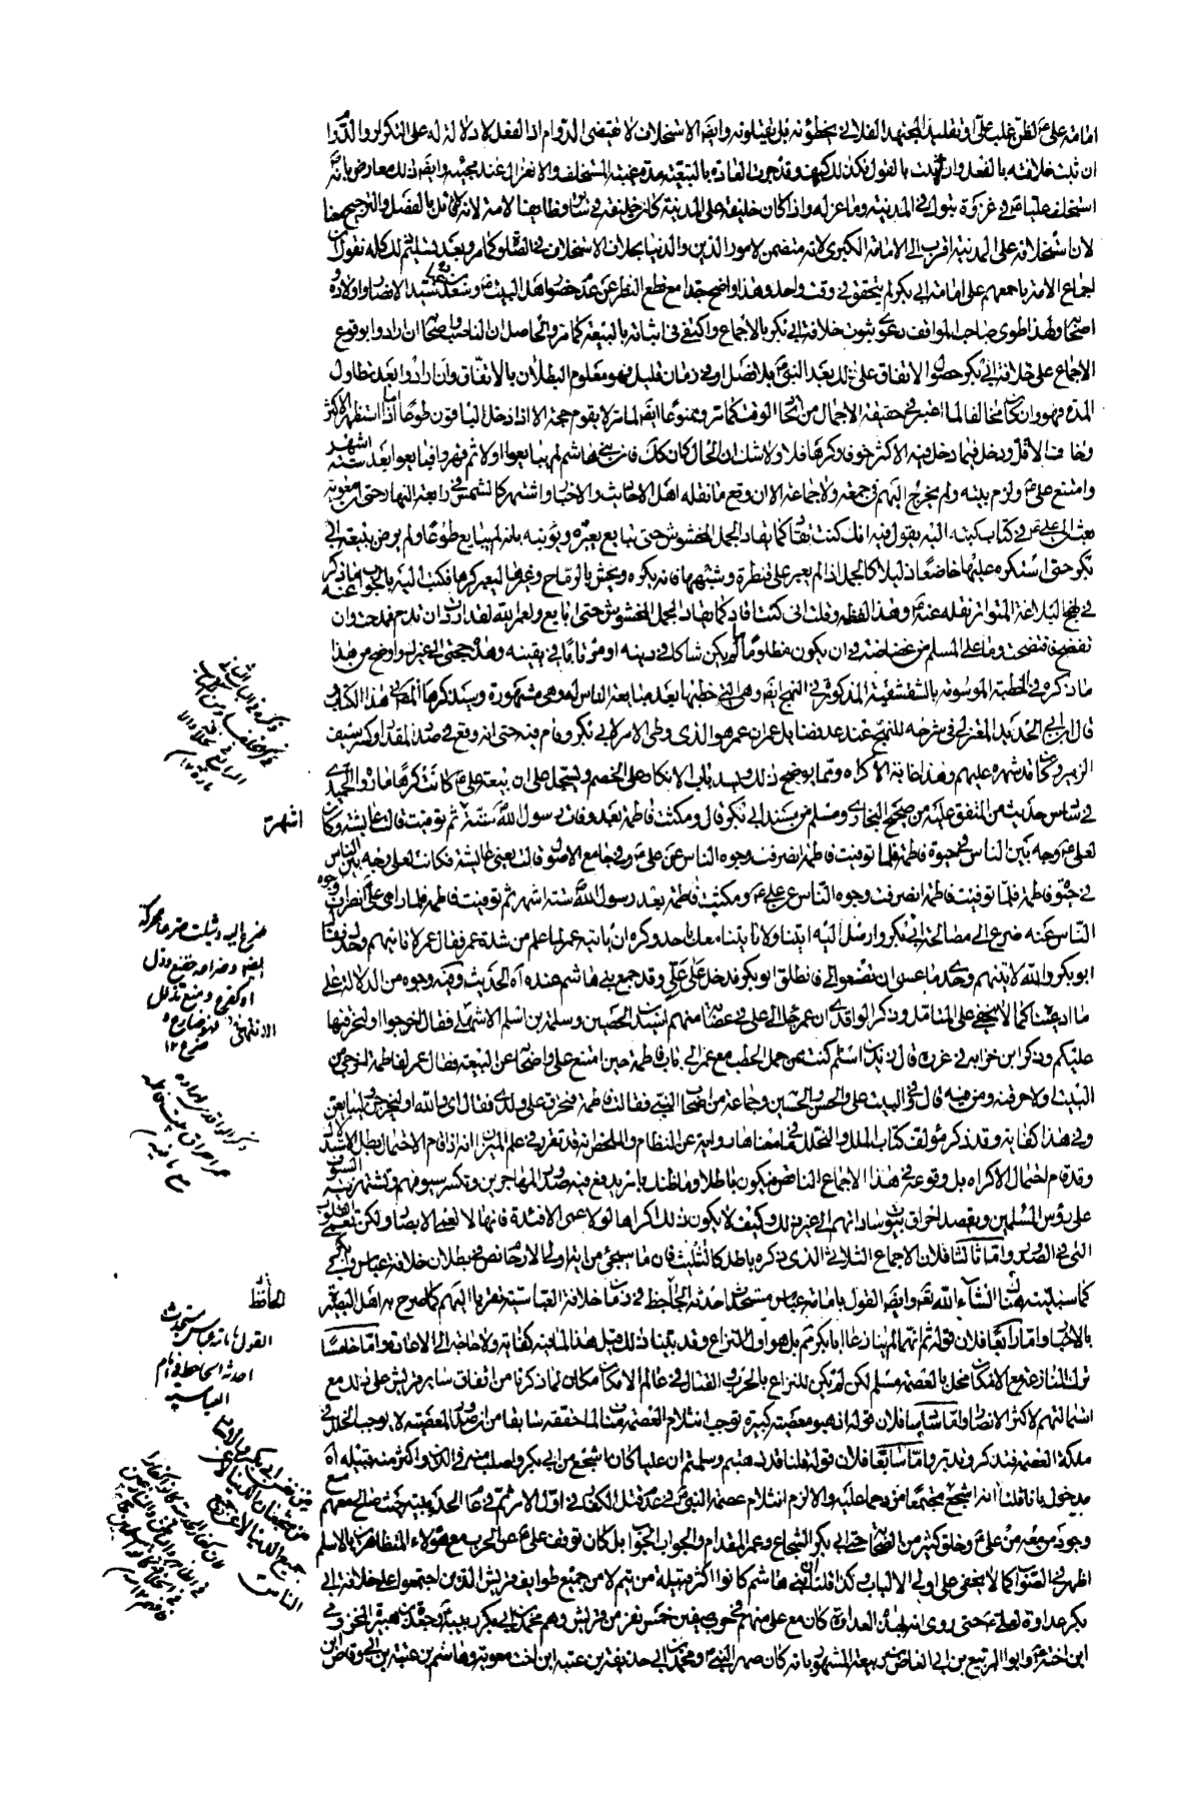 امامة علی ع لظن غلب علی او تقلید المجتهد الفلانی یخطؤنه بل یقتلونه وایضا الاستخلاف لا یقتضی الدوام اذ الفعل لا دلالة له علی التکرار والدوا
ان ثبت خلافته بالفعل وان ثبت بالقول فکذلک کیف وقد جرت العادة بالتبعیة مدة غیبة المستخلف والانعزال عند مجیئه وایضا ذلک معارض بانه
استخلف علیا ع فی غزوة تبوک فی المدینة وما عزله واذا کان خلیفة علی المدینة کان خلیفة فی سائر وظایف الامة لانه لا قائل بالفصل والترجیح معنا
لان استخلافه علی المدینة اقرب الی الامامة الکبری لانه متضمن لامور الدین والدنیا بخلاف الاستخلاف فی الصلوة کما مر وبعد تسلیم ذلک کله نقول ان
اجماع الامة باجمعهم علی امامة ابی بکر لم یتحقق فی وقت واحد وهذا واضح جدا مع قطع النظر عن عدم حضور اهل البیت ع وسعد بن عبادة سید الانصار واولاده و
اصحابه ولهذا طوی صاحب المواقف دعوی ثبوت خلافة ابی بکر بالاجماع واکتفی فی اثباته بالبیعة کما مر والحاصل ان الناصب واصحابه ان ارادوا بوقوع
الاجماع علی خلافة ابی بکر حصول الاتفاق علی ذلک بعد النبی ص بلا فصل او فی زمان قلیل فهو معلوم البطلان بالاتفاق وان ارادوا بعد تطاول
المدة فهو وان کان مخالفا لما اعتبر فی حقیقة الاجماع من اتحاد الوقت کما مر وممنوعا ایضا لما مر لا یقوم حجة الا اذا دخل الباقون طوعا اما اذا استظهر الاکثر
وخاف الاقل ودخل فیما دخل فیه الاکثر خوفا وکرها فلا ولا شک ان الحال کان کذلک فان بنی هاشم لم یبایعوا اولا ثم قهروا فبایعوا بعد ستة اشهر
وامتنع علی ع ولزم بیته ولم یخرج الیهم فی جمعة ولا جماعة الا ان وقع ما نقله اهل الاحادیث والاخبار واشتهر کالشمس فی رابعة النهار حتی ان معویة
بعث الی علی ع فی کتاب کتبه الیه یقول فیه انک کنت تقاد کما یقاد الجمل المخشوش حتی تبایع یعیره ویؤنبه بانه لم یبایع طوعا ولم یرض ببیعة ابی
بکر حتی استکره علیها خاضعا ذلیلا کالجمل اذا لم یعبر علی قنطرة وشبهها فانه یکره وینخس بالرماح وغیرها لیعبر کرها فکتب الیه بالجواب ما ذکر عنه
فی نهج البلاغة المتواتر نقله عنه ع وهذا لفظه وقلت انی کنت اقاد کما یقاد الجمل المخشوش حتی ابایع ولعمر الله لقد اردت ان تذم فمدحت وان
تفضح فافتضحت وما علی المسلم من غضاضة فی ان یکون مظلوما ما لم یکن شاکا فی دینه او مرتابا فی یقینه وهذه حجتی الی غیرک واوضح من هذا
ما ذکره فی الخطبة الموسومة بالشقشقیة المذکورة فی النهج ایضا وهی التی خطبها بعد مبایعة الناس له وهی مشهورة وسیذکرها المص فی هذا الکتاب و
قال ابن ابی الحدید المعتزلی فی شرحه للنهج عند عد فضایل عمر ان عمر هو الذی وطی الامر لابی بکر وقام فیه حتی انه وقع فی صدر المقداد وکسر سیف
الزبیر وکان قد شهره علیهم وهذا غایة الاکراه ومما یوضح ذلک ویسد باب الانکار علی الخصم ویسجل علی ان بیعة علی ع کانت کرها ما رواه الحمیدی
فی سادس حدیث من المتفق علیه من صحیح البخاری ومسلم من مسند ابی بکر قال ومکثت فاطمة بعد وفات رسول الله ستة ثم توفیت قالت عایشة وکان
لعلی ع وجه بین الناس فی حیوة فاطمة فلما توفیت فاطمة انصرفت وجوه الناس عن علی ع وفی جامع الاصول قالت یعنی عایشة فکانت لعلی وجه بین الناس
فی حیوة فاطمة فلما توفیت فاطمة انصرفت وجوه الناس عن علی ع ومکثت فاطمة بعد رسول الله ستة اشهر ثم توفیت فاطمة فلما رای علی انصراف وجوه
الناس عنه ضرع الی مصالحة ابی بکر وارسل الیه ایتنا ولا تاتینا معک باحد وکره ان یاتیه عمر لما علم من شدة عمر فقال عمر لا تاتیهم وحدک فقال
ابو بکر والله لاتینهم وحدی ما عسی ان یصنعوا بی فانطلق ابو بکر فدخل علی علی وقد جمع بنی هاشم عنده اه الحدیث وفیه وجوه من الدلالة علی
ما ادعیناه کما لا یخفی علی المتامل وذکر الواقدی ان عمر جاء الی علی فی عصابة منهم اسید بن الحصین وسلمة بن اسلم الاشهلی فقال اخرجوا او لنحرقنها
علیکم وذکر ابن خزابه فی غرره قال زید بن اسلم کنت ممن حمل الحطب مع عمر الی باب فاطمة حین امتنع علی واصحابه عن البیعة فقال عمر لفاطمة اخرجی من
البیت او لاحرقنه ومن فیه قال وفی البیت علی والحسن والحسین وجماعة من اصحاب النبی فقالت فاطمة فتحرق علی ولدی فقال ای والله او لیخرجن ولیبایعن
وفی هذا کفایة وقد ذکر مؤلف کتاب الملل والنحل ما معناها روایة عن النظام والملخص انه قد تقرر فی علم المیزان انه اذا قام الاحتمال بطل الاستدلال
وقد قام احتمال الاکراه بل وقوعه فی هذا الاجماع الناقص فیکون باطلا وما ظنک بامر یدفع فیه صدور المهاجرین وتکسر سیوفهم وتشهر فیه السیوف
علی رؤس المسلمین ویقصد احراق بیوت ساداتهم الی غیر ذلک وکیف لا یکون ذلک اکراها لولا عمی الافئدة فانها لا تعمی الابصار ولکن تعمی القلوب
التی فی الصدور واما ثالثا فلان الاجماع الثلاثی الذی ذکره باطل کالتثلیث فان ما سیجئ من ابتداء ولی الارحام نص فی بطلان خلافة عباس وابی بکر
کما سنبینه هناک انشاء الله تعالی وایضا القول بامامة عباس مستحدث احدثه الجاحظ فی زمان خلافة العباسیة تقربا الیهم کما صرح به اهل البصیرة
بالاخبار واما رابعا فلان قوله ثم انهما لم ینازعا ابا بکر ثم بل هو اول النزاع وقد بینا ذلک قبل هذا لما بینه کفایة ولا حاجة الی الاعادة واما خامسا
ترک المنازعة مع الامکان مخل بالعصمة مسلم لکن لم یکن للنزاع بالحرب والقتال فی عالم الامکان مکان لما ذکرنا من اتفاق سایر قریش علی ذلک مع
استمالتهم لاکثر الانصار واما سادسا فلان قوله اذ هو معصیة کبیرة توجب انثلام العصمة مناف لما حققه سابقا من ان صدور المعصیة لا یوجب الخلل فی
ملکة العصمة فتذکر وتدبر واما سابعا فلان قوله قلنا قد ذهبتم وسلمتم ان علیا کان اشجع من ابی بکر واصلب منه فی الدین واکثر منه قبیلة اه
مدخول بانا قلنا انه اشجع مجتمعا من وجدها علیه والا لزم انثلام عصمة النبی ص فی عدم قتل الکفار فی اول الامر ثم فی عام الحدیبیة حیث صالح معهم مع
وجود من معه من علی ع وخلق کثیر من الصحابة حتی ابی بکر الشجاع وعمر المقدام والجواب الجواب بل کان توقف علی ع عن الحرب مع هؤلاء المتظاهرین بالاسلام
اظهر فی الصواب کما لا یخفی علی اولی الالباب وکذا قلنا ان بنی هاشم کانوا اکثر قبیلة من تیم لا من جمیع طوایف قریش الذین اجتمعوا علی خلافة ابی
بکر عداوة لعلی ع حتی روی انه لهذه العداوة کان مع علی منهم فی حرب صفین خمس نفر من قریش وهم محمد بن ابی بکر ربیبه وجعدة بن هبیرة المخزومی
ابن اخته ع وابو الربیع بن ابی العاص بن ربیعة المشهور بانه کان صهر النبی ص ومحمد بن ابی حذیفة بن عتبة ابن اخت معویة وهاشم بن عتبة بن ابی وقاص ابن
اشهر
الجاحظ
القول بامامة عباس مستحدث
احدثه الجاحظ فی ایام
العباسیة